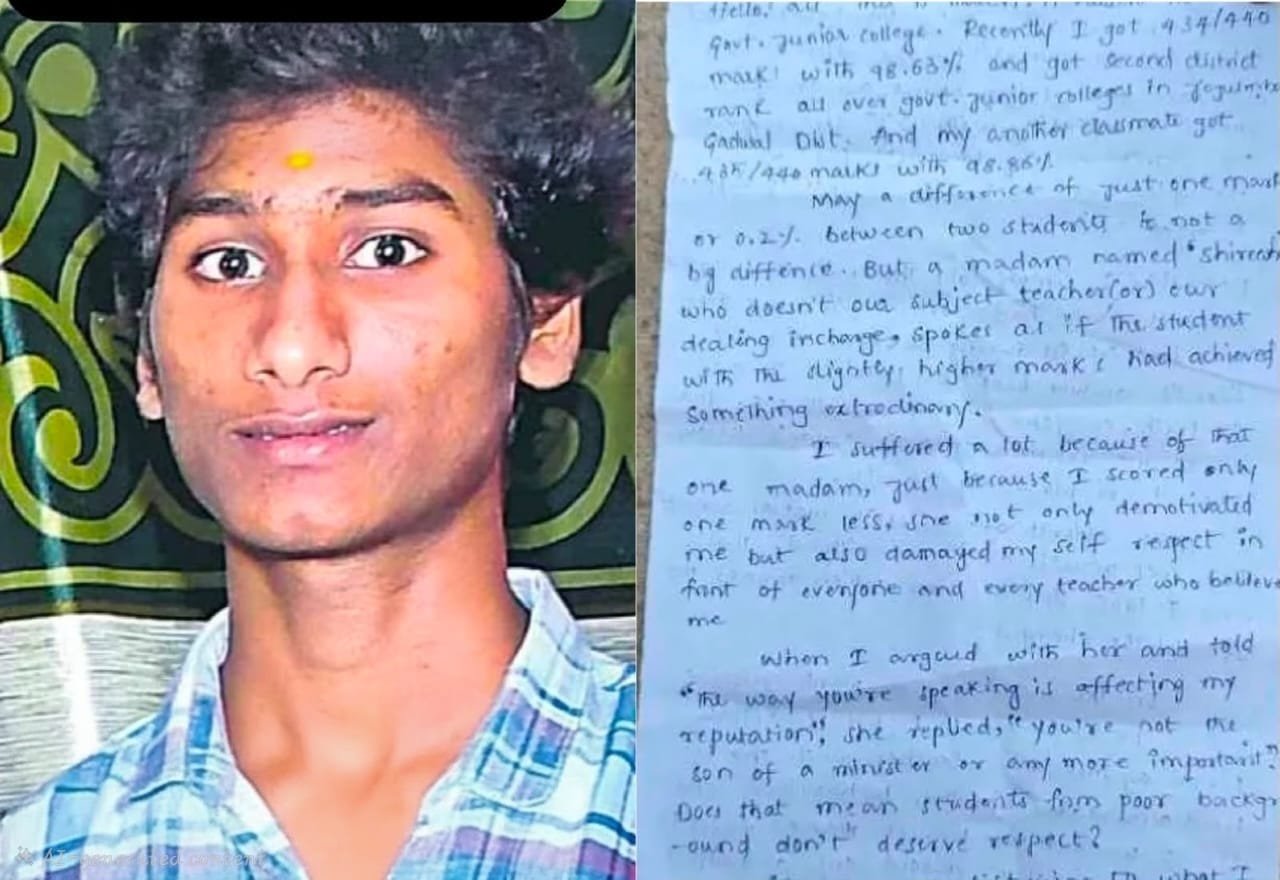 Hello, all
Govt. Junior college. Recently I got 434/440
marks with 98.63% and got second district
rank all over govt. junior colleges in
Gadwal Dist. And my another classmate got
435/440 marks with 98.86%.
May a difference of just one mark
or 0.2% between two students is not a
big diffence. But a madam named "
who doesn't our subject teacher (or) our
dealing incharge, spokes as if the student
with the slightly higher marks had achieved
something extrodinary.
I suffered a lot because of that
one madam, just because I scored only
one mark less, she not only demotivated
me but also damaged my self respect in
font of everyone and every teacher who believe
me
When I argued with her and told
"The way you're speaking is affecting my
reputation", she replied, "you're not the
son of a minister or any more important"
Does that mean students from poor backgr
-ound don't deserve respect?
what I
AI-generated content